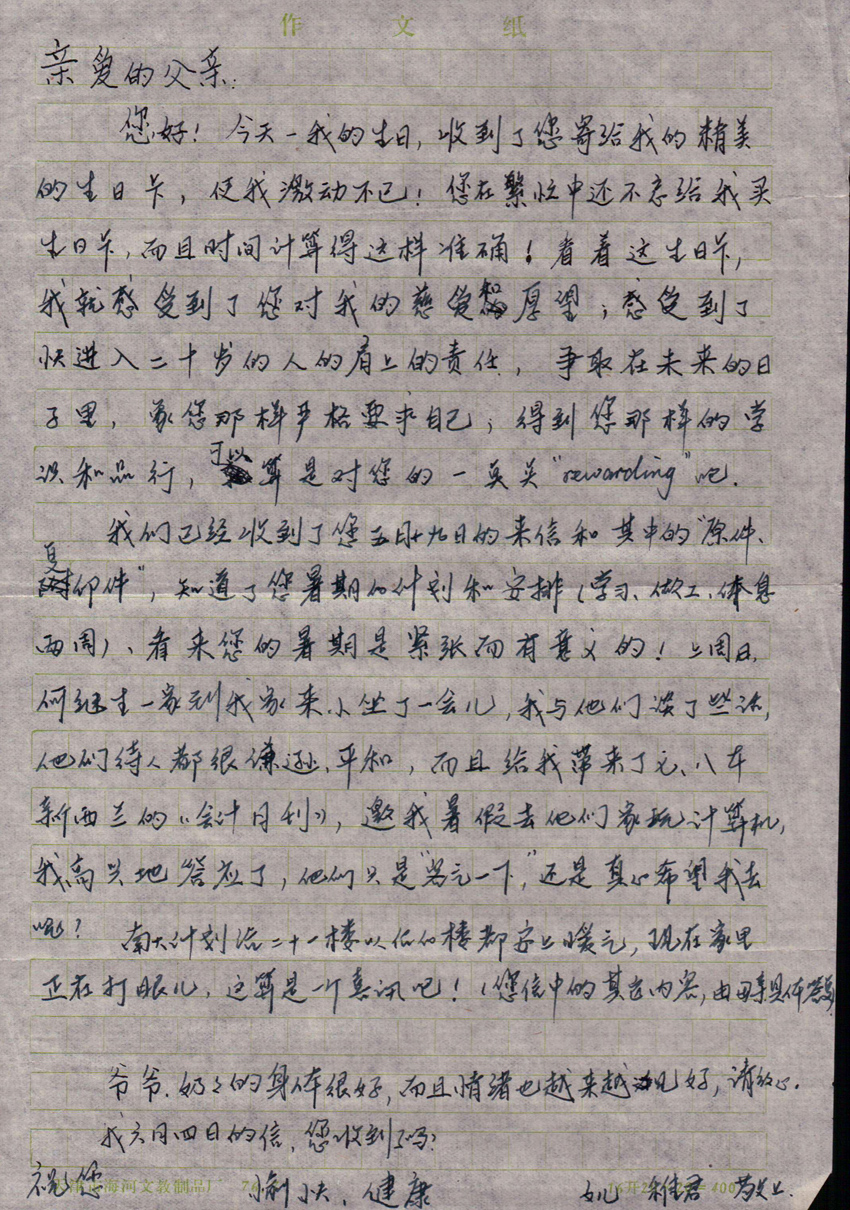 作文纸
亲爱的父亲:
您好！今天一我的生日,收到了您寄给我的精美
的生日卡，使我激动不已！您在繁忙中还不忘给我买
生日卡,而且时间计算得这样准确！看着这生日卡,
我就感受到了您对我的慈爱和厚望；感受到了
快进入二十岁的人的肩上的责任，争取在未来的日
子里，象您那样严格要求自己；得到您那样的学
识和品行，可以算是对您的一负负"rewarding"吧.
我们已经收到了您五月十九日的来信和其中的"原件、
复印件"，知道了您暑期的计划和安排(学习、做工、休息
两周)、看来您的暑期是紧张而有意义的！上周日,
何继生一家到我家来小坐了一会儿,我与他们谈了些话,
他们待人都很谦逊、平和，而且给我带来了七、八本
新西兰的《会计月刊》，邀我暑假去他们家玩计算机,
我高兴地答应了，他们只是"客气一下,"还是真心希望我去
呢？南大计划给二十一楼以后的楼都安上暖气,现在家里
正在打眼儿、这算是一个喜讯吧！(您信中的其它内容,由母亲具体答复)
爷爷.奶々的身体很好,而且情绪也越来越见好,请放心.
我六月四日的信,您收到了吗?
祝您 愉快、健康 女儿 维君 敬上.
海河文教制品厂